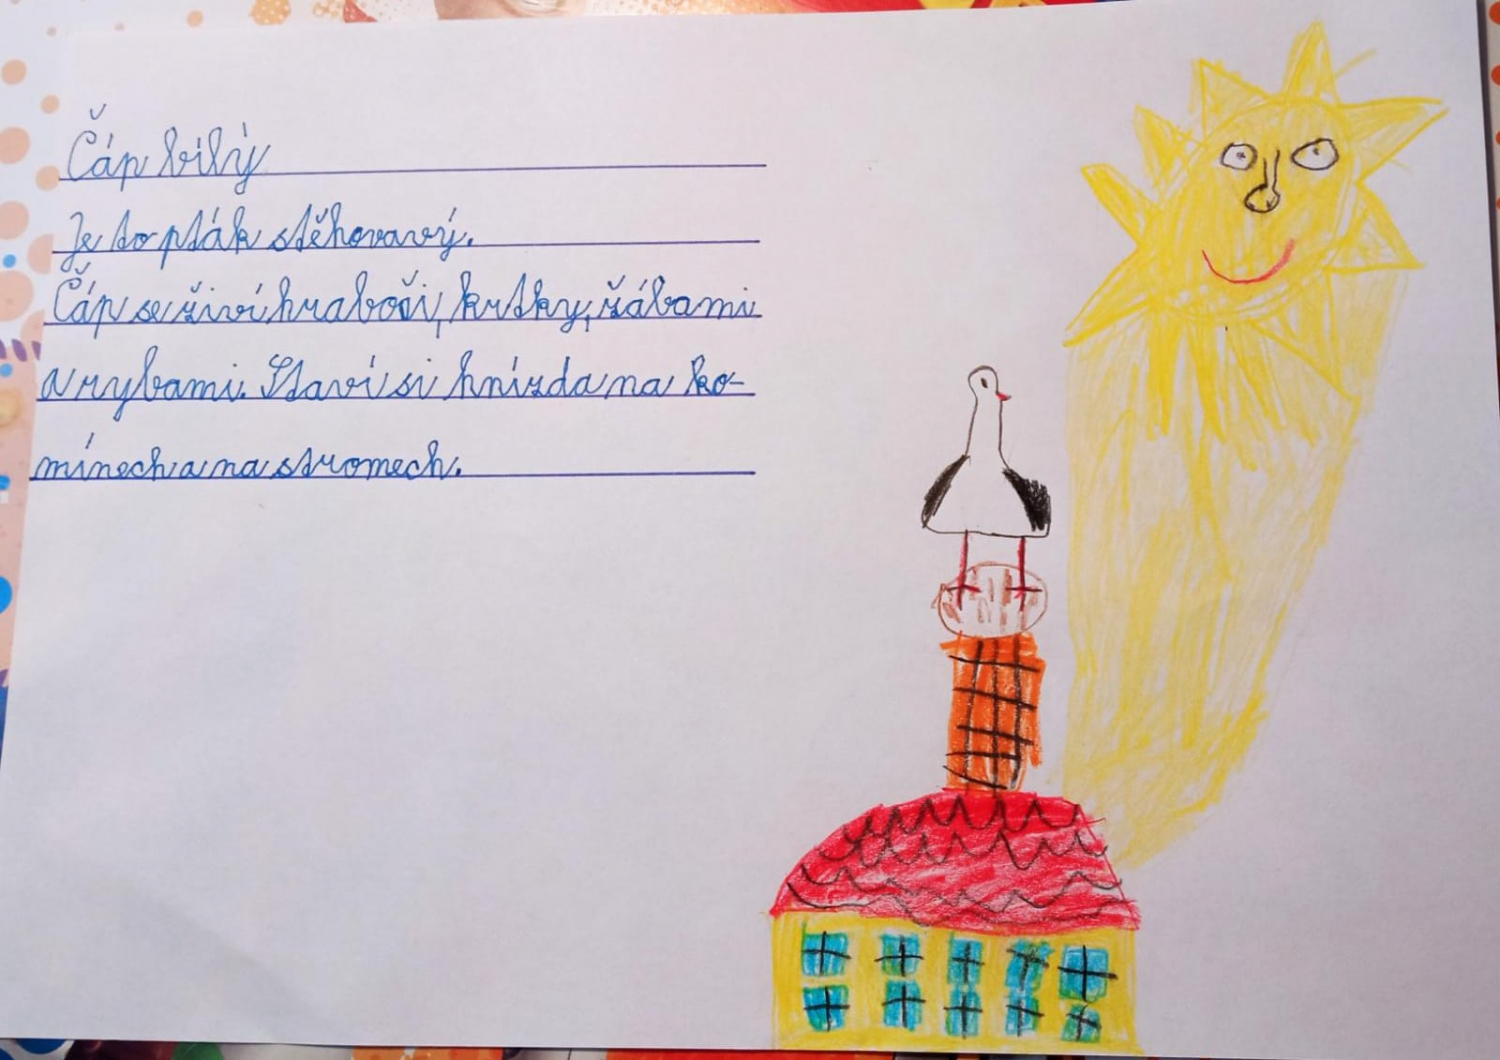 Čáp bílý
Je to pták stěhovavý.
Čáp se živí hraboši, krtky, žábami
a rybami. Staví si hnízda na ko-
mínech a na stromech.